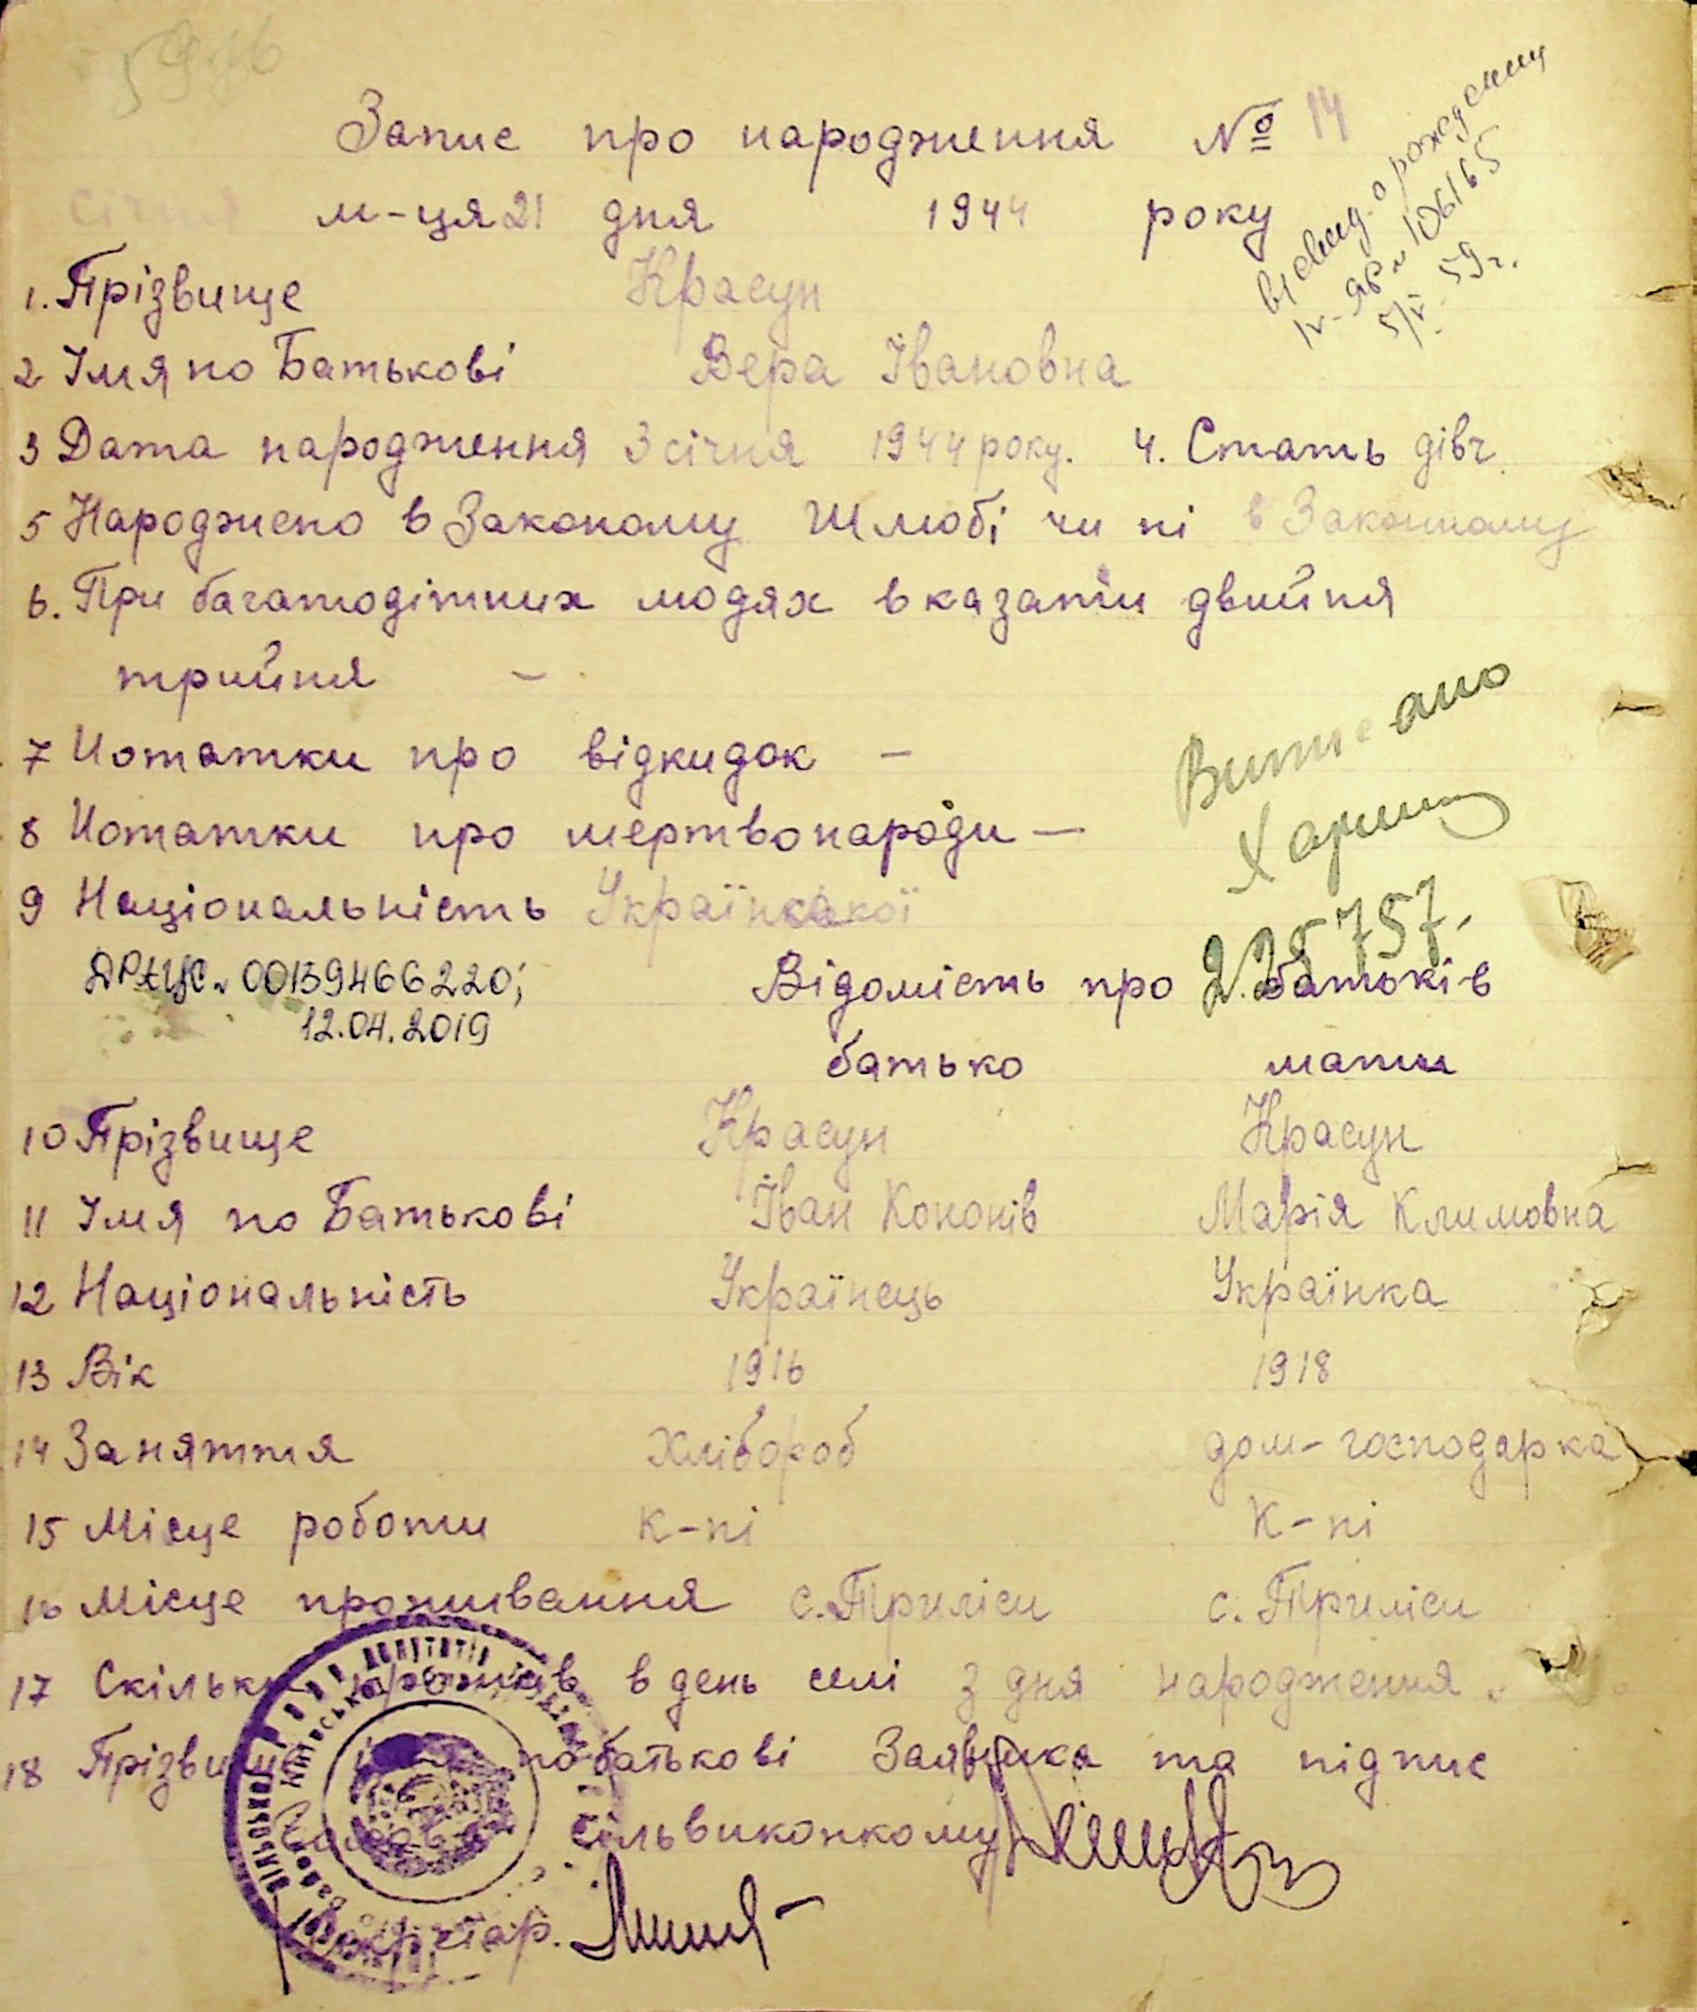 Запис про народження № 14
січня м-ця 21 дня 1944 року
в/свид. о рождении
IV-ЯБ № 106165
5/V- 59г.
1. Прізвище Красун
2 Імя по Батькові Вера Івановна
3 Дата народження 3 січня 1944 року. 4. Стать дівч.
5 Народжено в Законому Шлюбі чи ні в Законному
6. При багатодітних людях вказати двийня
трийня –
7 Нотатки про відкидок –
8 Нотатки про мертвонароди –
9 Національність Українкакої
225757.
ДРАЦСу 00139466220;
12.04.2019
Відомість про батьків
батько мати
10 Прізвище Красун Красун
11 Імя по Батькові Іван Кононів Марія Климовна
12 Національність Українець Українка
13 Вік 1916 1918
14 Заняття Хлібороб дом-господарка
15 Місце роботи к-пі к-пі
16 Місце проживання с. Триліси с. Триліси
17 Скільки прожив в день селі з дня народження.
18 Прізвище імя по батькові Заявника та підпис
Голова сільвиконкому
Секретар.